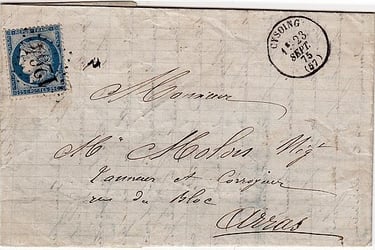 CYSOING
1E 23
SEPT.
75
(57)
Monsieur
Mr Molin Mgt
Tanneur et Corroyeur
rue du Bloc
Arras